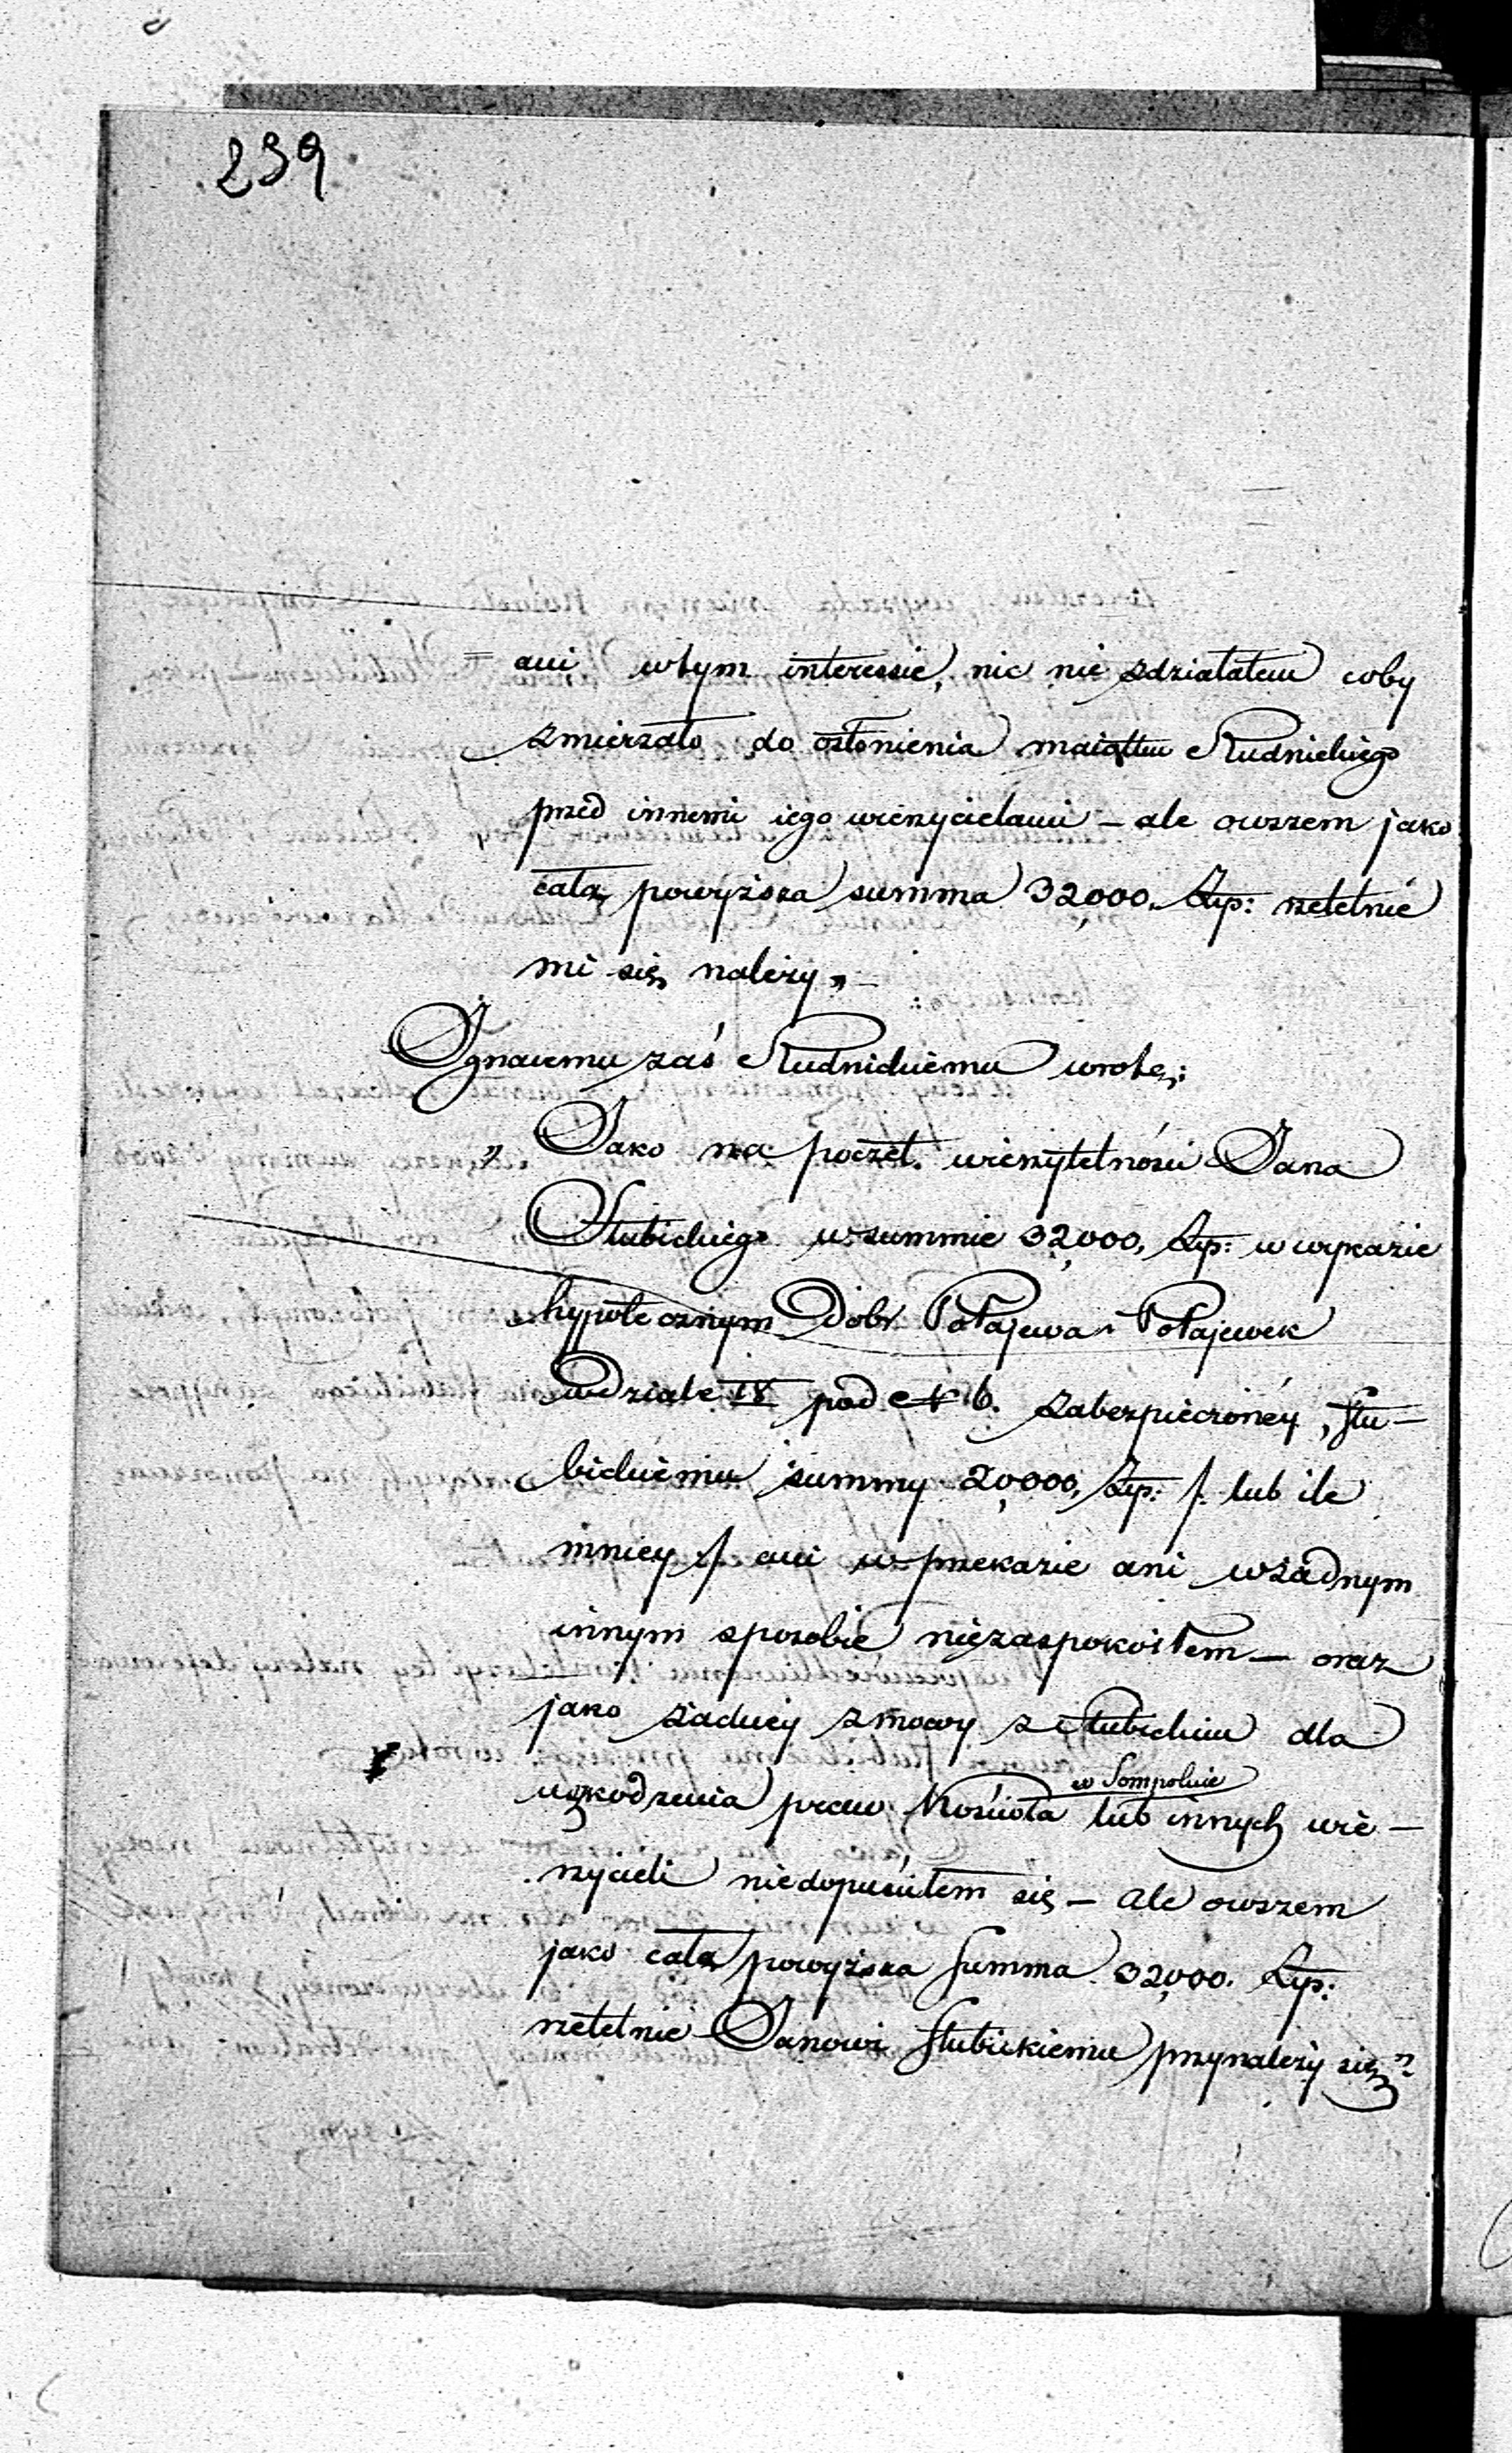 239
= ani wtym interessie, nic nie zdziałałem coby
zmierzało do osłonienia maiątku Rudnickiego
przed innemi iego wierzycielami – ale owszem jako
cała powyższa summa 32,000. Złp: rzetelnie
mi się należy „ –
Ignacemu zaś Rudnickiemu w rotę:
„ Jako na poczet. wierzytelności Jana
Słubickiego w summie 32,000, Złp: w wykazie
hypotecznym Dobr Połajewa i Połajewek
w dziale IV pod N 6. zabezpieczoney, Słu –
bickiemu summy 20,000, Złp: /. lub ile
mniey /. ani w przekazie ani w żadnym
innym sposobie niezaspokoiłem – oraz
jako żadney zmowy z Słubickim dla
uszkodzenia praw Kościoła w Sompolnie lub innych wie –
rzycieli niedopuściłem się – ale owszem
jako cała powyższa summa 32,000. Złp:
rzetelnie Janowi Słubickiemu przynależy się „